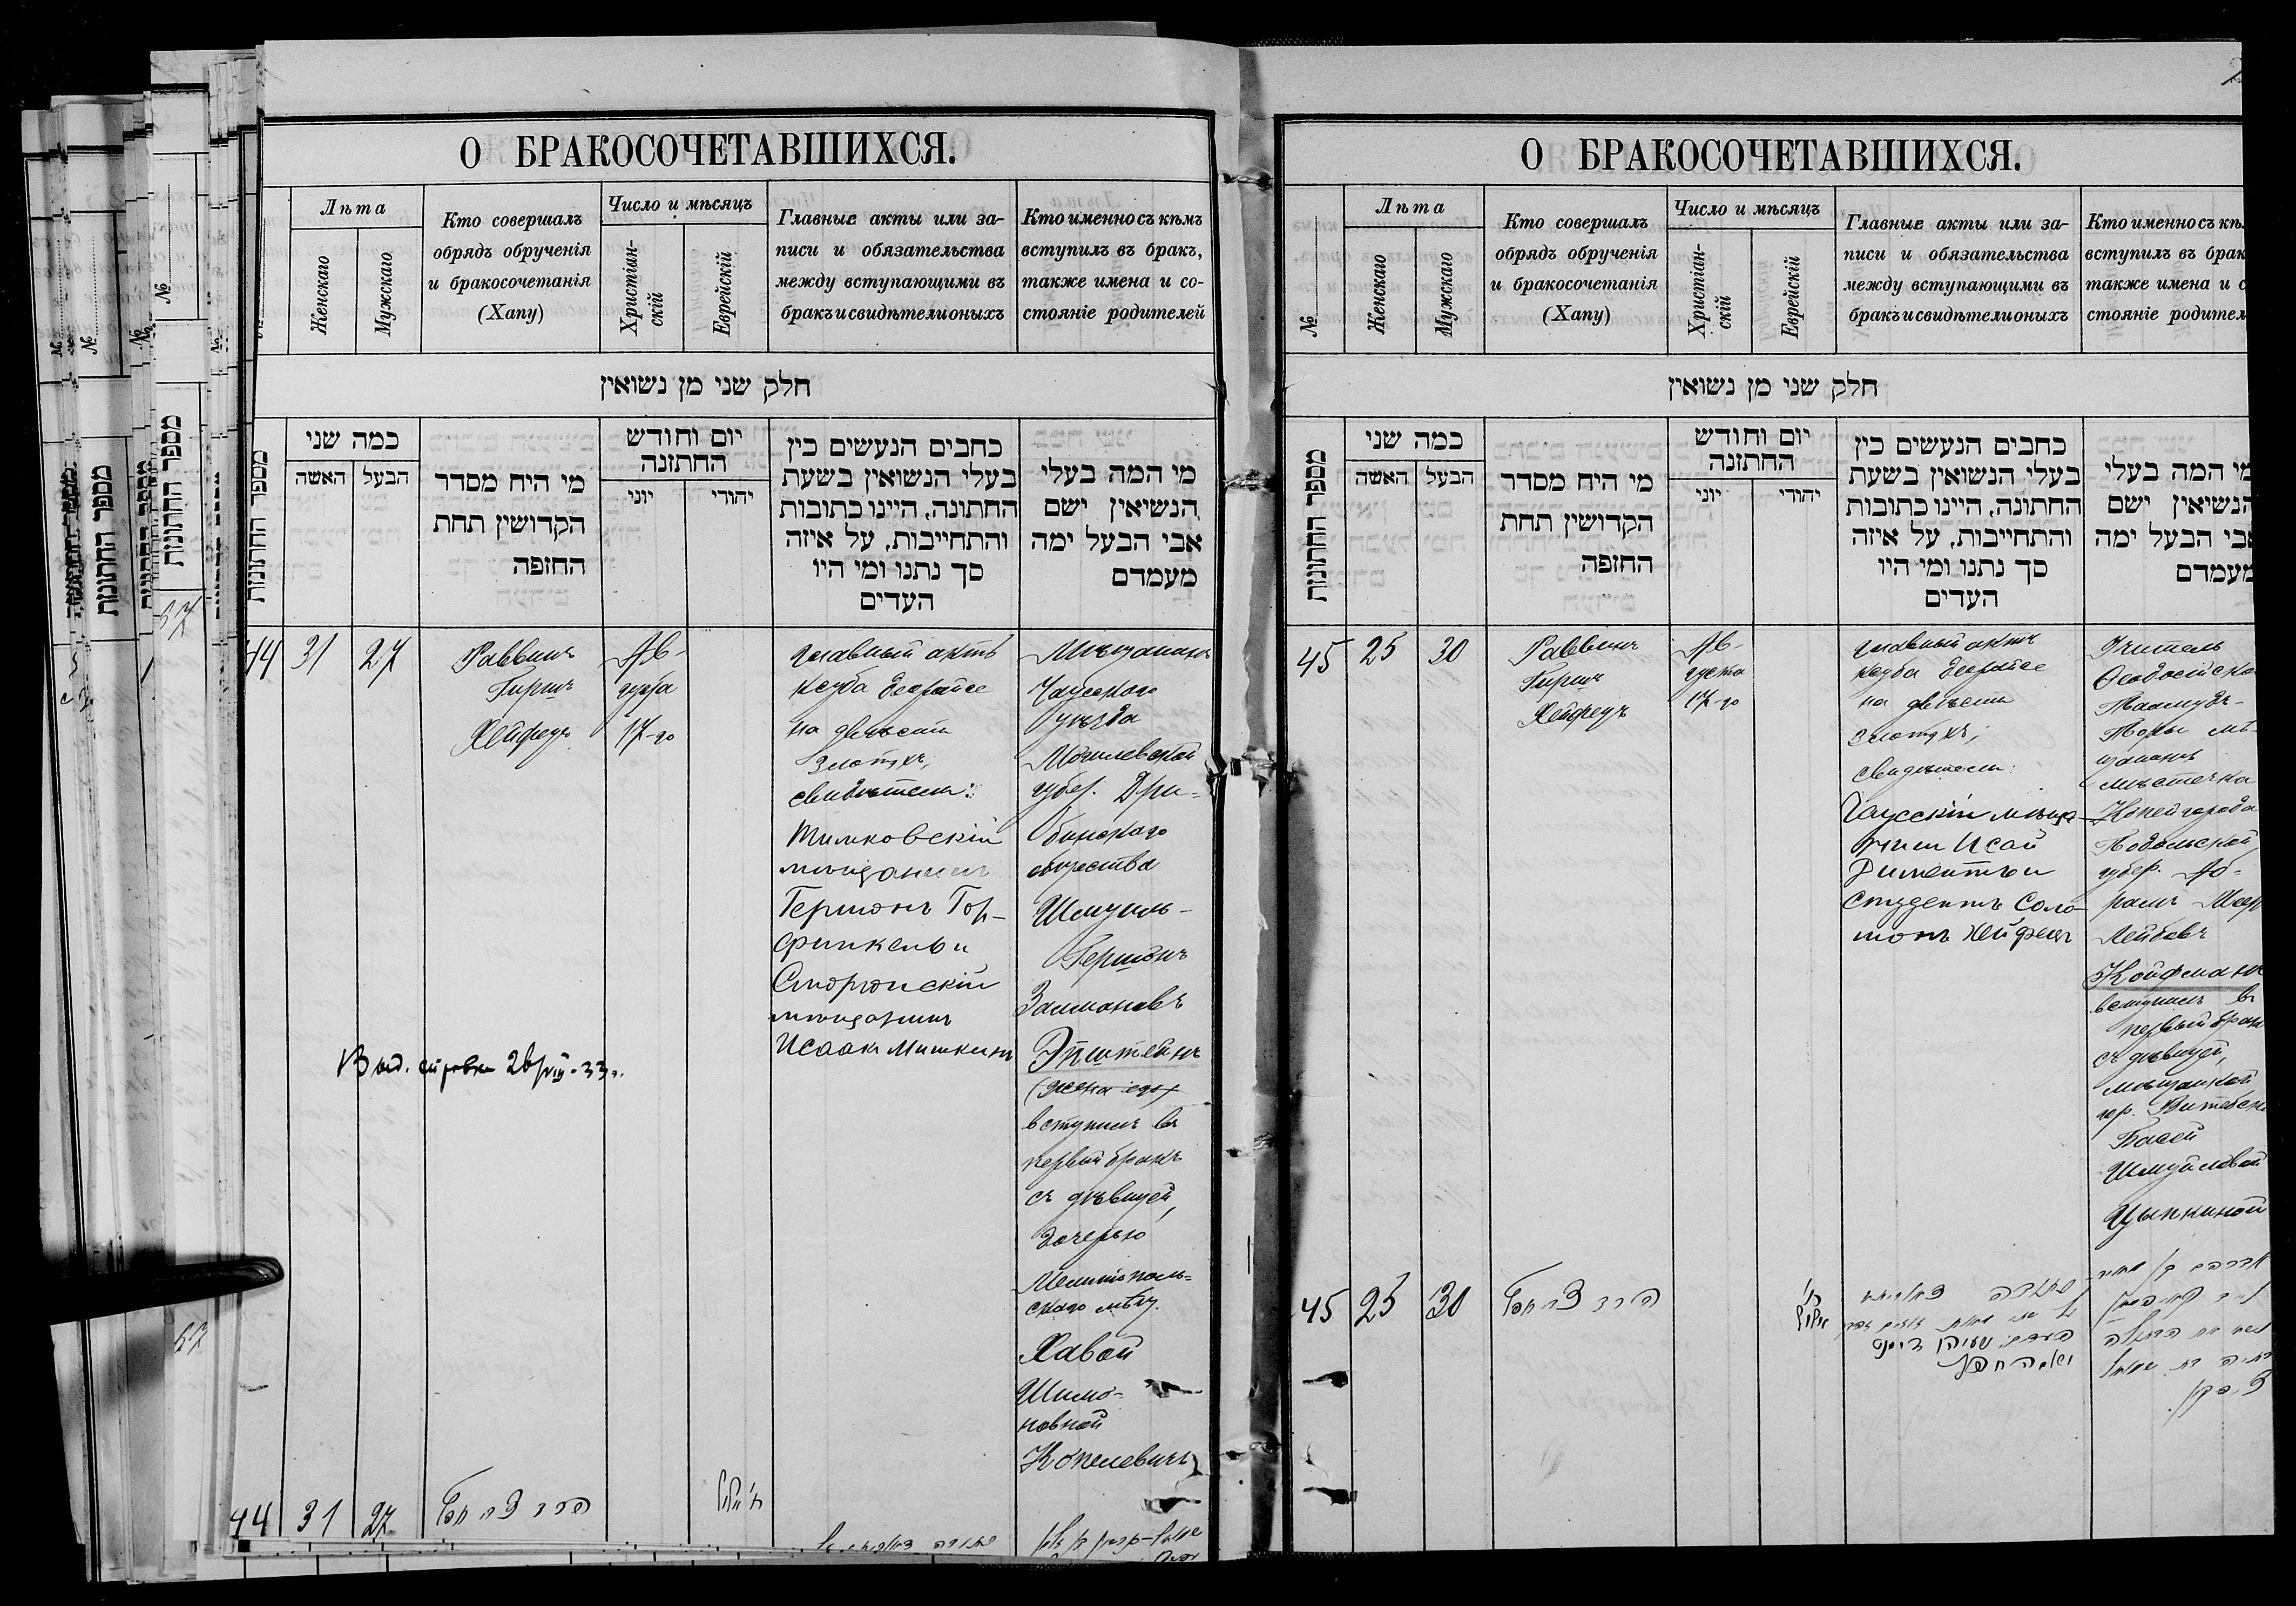 О БРАКОСОЧЕТАВШИХСЯ.
Лѣта
Женскаго
Мужскаго
Кто совершалъ
обрядъ обрученія
и бракосочетанія
(Хапу)
Число и мѣсяцъ
Христіан-
скій
Еврейскій
Главные акты или за-
писи и обязательства
между вступающими въ
бракъ и свидѣтели оныхъ
Кто именно съ кѣмъ
вступилъ въ бракъ,
также имена и со-
стояніе родителей
חלק שני מן נשואין
מספר החתונות
כמה שני
האשה
הבעל
מי היח מסדר
הקדושין תחת
החזפה
יום וחודש
החתזנה
יוני
יהודי
כחבים הנעשים כין
בעלי הנשואין בשעת
החתונה, היינו כתובות
והתחייבות, על איזה
סך נתנו ומי היו
העדים
מי המה בעלי
הנשיאין ישם
אבי הבעל ימה
מעמדם
44
31
27
Раввинъ
Гиршъ
Хейфецъ
Ав-
густа
17-го
главный актъ
ксуба деорайсе
на двѣсти
злотыхъ;
свидѣтели:
Шимковскій
мѣщанинъ
Гершонъ Гор-
финкель и
мѣщанинъ
Исаакъ Мишкинъ
Мѣщанинъ
Чаусскаго
уѣзда
Могилевской
губер. Дри-
бинскаго
общества
Шмуиль-
Гершонъ
Залмановъ
Эпштейнъ
(жена его)
вступилъ въ
первый бракъ
съ дѣвицей,
дочерью
Мелитополь-
скаго мѣщ.
Хавой
Шимо-
новной
Копелевичъ
Выд. справка 26/VIII-33г.
44
31
27
הרב צבי חפץ
О БРАКОСОЧЕТАВШИХСЯ.
№
Лѣта
Женскаго
Мужскаго
Кто совершалъ
обрядъ обрученія
и бракосочетанія
(Хапу)
Число и мѣсяцъ
Христіан-
скій
Еврейскій
Главные акты или за-
писи и обязательства
между вступающими въ
бракъ и свидѣтели оныхъ
Кто именно съ кѣ
вступилъ въ брак
также имена и с
стояніе родител
חלק שני מן נשואין
מספר החתונות
כמה שני
האשה
הבעל
מי היח מסדר
הקדושין תחת
החזפה
יום וחודש
החתזנה
יוני
יהודי
כחבים הנעשים כין
בעלי הנשואין בשעת
החתונה, היינו כתובות
והתחייבות, על איזה
סך נתנו ומי היו
העדים
מי המה בעלי
הנשיאין ישם
אבי הבעל ימה
מעמדם
45
25
30
Раввинъ
Гиршъ
Хейфецъ
Ав-
густа
17-го
главный актъ
ксуба деорайсе
на двѣсти
злотыхъ;
свидѣтели:
Чаусскій мѣща-
нинъ Исай
Диментъ и
студентъ Соло-
монъ Хейфецъ
Учитель
Ѳеодосійско
Талмудъ-
Торы мѣ-
щанинъ
мѣстечка
Копейгорода
Подольской
губер. Аб-
рамъ Меер
Лейбовъ
Койфманъ
вступилъ въ
первый брак
съ дѣвицей,
мѣщанкой
гор. Витебска
Басей
Шмуйловой
Цыпкиной
45
25
30
הרב צבי חפץ